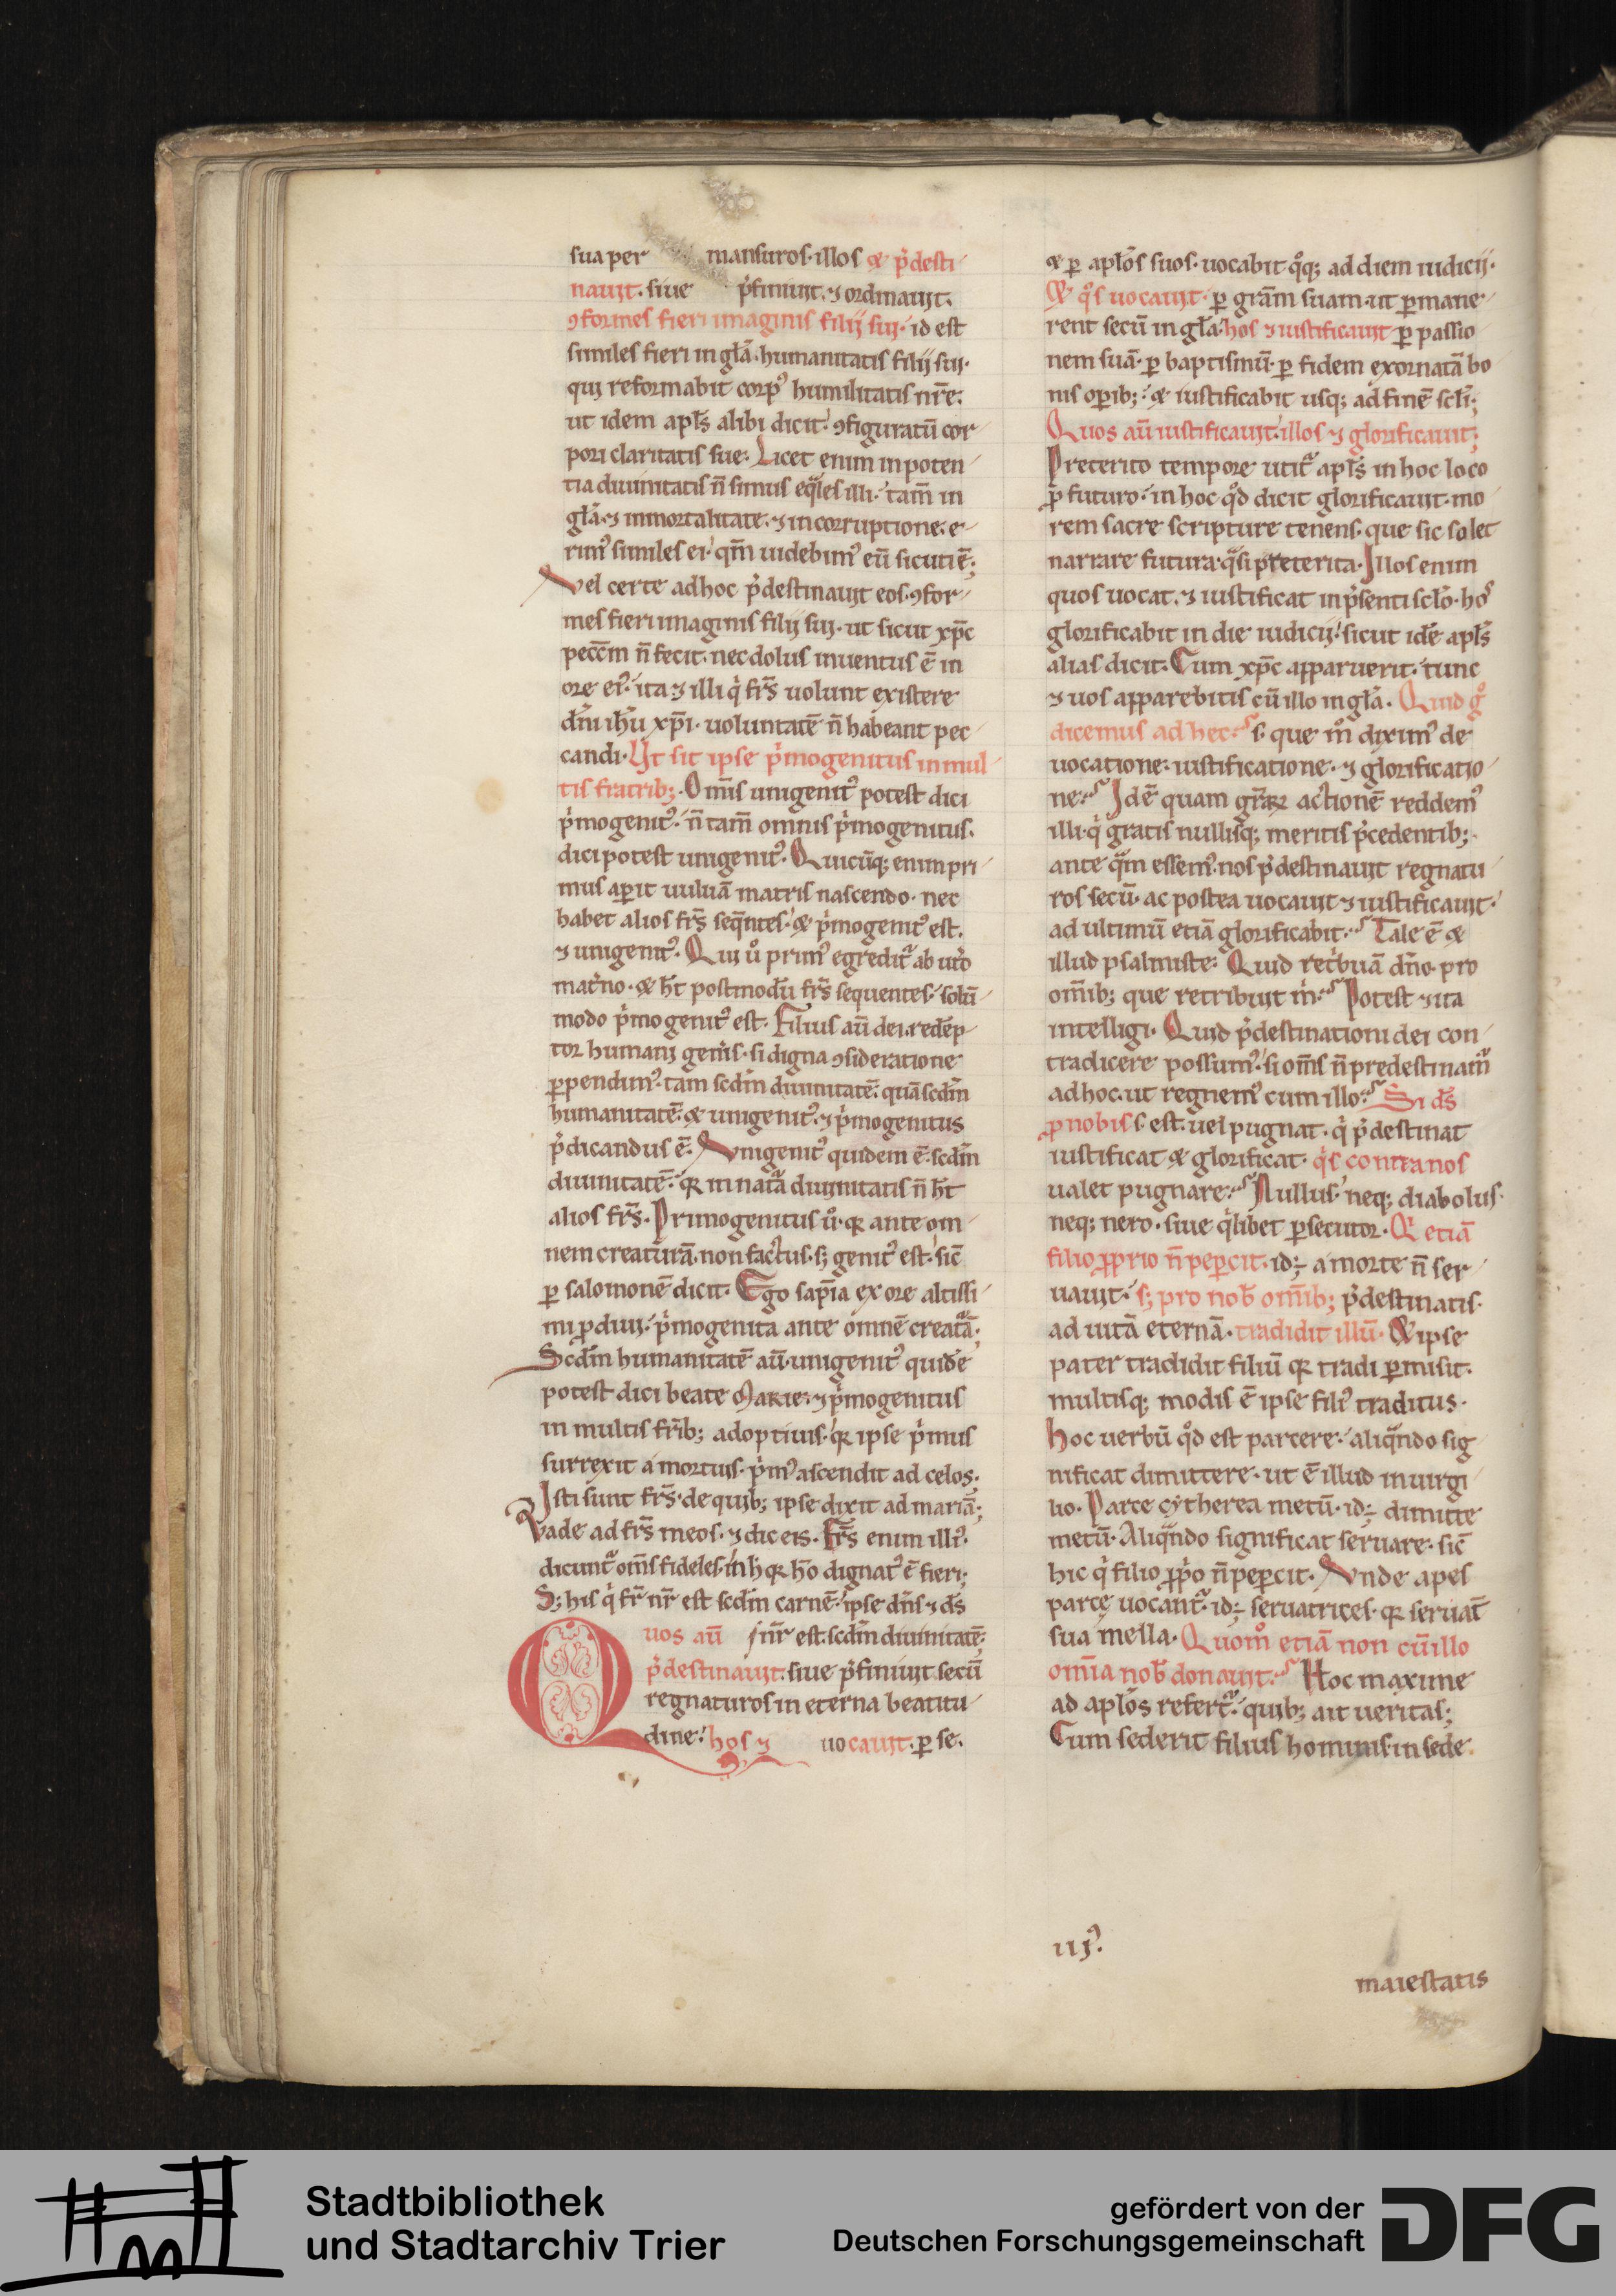 sua per mansuros· illos & p̍desti
nauit· siue p̍finiuit· ⁊ ordinauit·
ꝯformes fieri imaginis filij sui· id est
similes fieri in gl̄a· humanitatis filij sui·
qui reformabit corpꝰ humilitatis nr̄e·
ut idem apl̄s alibi dicit· ꝯfiguratū cor
pori claritatis sue· Licet enim in poten
tia diuinitatis n̄ simus eq̄les illi· tam̄ in
gl̄a· ⁊ inmortalitate· ⁊ incorruptione· e
rimꝰ similes ei· qm̄ uidebimꝰ eū sicuti ē;
Vel certe ad hoc p̍destinauit eos· ꝯfor
mes fieri imaginis filij sui· ut sicut xp̄c
pecc̄m n̄ fecit· nec dolus inuentus ē in
ore eiꝰ· ita ⁊ illi q̍ fr̄s uolunt existere
dn̄i ih̄u xp̄i· uoluntatē n̄ habeant pec
candi· Ut sit ipse p̍mogenitus in mul
tis fratrib; Om̄is unigenitꝰ potest dici
p̍mogenitꝰ· n̄ tam̄ omnis p̍mogenitus·
dici potest unigenitꝰ· Quicūq; enim pri
mus aꝑit uuluā matris nascendo· nec
habet alios fr̄s seq̄ntes· & p̍mogenitꝰ est·
⁊ unigenitꝰ· Qui ů primꝰ egredit᷑ ab ut̍o
mat̍no· & h̄t postmodū fr̄s sequentes· solū
modo p̍mogenitꝰ est· Filius aū dei· redēp
tor humani gen̍is· si digna ꝯsideratione
ꝑpendimꝰ· tam scdm̄ diuinitatē· quā scdm̄
humanitatē· & unigenitꝰ· ⁊ p̍mogenitus
p̍dicandus ē· Unigenitꝰ quidem ē· scdm̄
diuinitatē· qꝛ in nat᷑a diuinitatis n̄ h̄t
alios fr̄s· Primogenitus ů· qꝛ ante om
nem creaturā· non factus· s; genitꝰ est· sic̄
ꝑ salomonē dicit· Ego sap̄ia ex ore altissi
mi ꝓdiui· p̍mogenita ante omnē creat᷑ā;
Scdm̄ humanitatē aū· unigenitꝰ quidē
potest dici beate Marie· ⁊ p̍mogenitus
in multis fr̄ib; adoptiuis· qꝛ ipse p̍mus
surrexit a mortuis· p̍mꝰ ascendit ad celos·
Isti sunt fr̄s· de quib; ipse dixit ad mariā;
Vade ad fr̄s meos· ⁊ dic eis· Fr̄s enim illiꝰ·
dicunt᷑ om̄s fideles· in h̍ qꝛ hō dignatꝰ ē fieri;
S; his q̍ fr̄ nr̄ est scdm̄ carnē· ipse dn̄s ⁊ ds̄
Quos aū nr̄ est· scdm̄ diuinitatē·
p̍destinauit· siue p̍finiuit secū
regnaturos in eterna beatitu
dine· hos ⁊ uocauit· ꝑ se·
& ꝑ apl̄os suos· uocabit q̊q; ad diem iudicij·
Et q̊s uocauit· ꝑ grām suam· ut ꝑmane
rent secū in gl̄a· hos ⁊ iustificauit ꝑ passio
nem suā· ꝑ baptismū· ꝑ fidem exornatā bo
nis oꝑib; & iustificabit usq; ad finē scl̄i;
Quos aū iustificauit· illos ⁊ glorificauit;
Preterito tempore utit᷑ apl̄s in hoc loco
ꝓ futuro· in hoc q̊d dicit glorificauit· mo
rem sacre scripture tenens· que sic solet
narrare futura· q̄si preterita· Illos enim
quos uocat· ⁊ iustificat in p̍senti scl̄o· hos
glorificabit in die iudicij· sicut idē apl̄s
alias dicit· Cum xp̄c apparuerit· tunc
⁊ uos apparebitis cū illo in gl̄a· Quid g̊
dicemus ad hec· s· que m̊ diximꝰ de
uocatione· iustificatione· ⁊ glorificatio
ne· Idē quam grāꝝ actionē reddemꝰ
illi· q̍ gratis nullisq; meritis p̍cedentib;
ante q̄m essemꝰ· nos p̍destinauit regnatu
ros secū· ac postea uocauit ⁊ iustificauit·
ad ultimū etiā glorificabit· Tale ē &
illud psalmiste· Quid ret̍buā dn̄o· pro
om̄ib; que retribuit m̍· Potest ⁊ ita
intelligi· Quid p̍destinationi dei con
tradicere possumꝰ· si om̄s n̄ predestinam᷑
ad hoc· ut regnemꝰ cum illo· Si ds̄
ꝓ nobis s· est· uel pugnat· q̍ p̍destinat
iustificat & glorificat· q̍s contra nos
ualet pugnare· Nullus· neq; diabolus·
neq; nero· siue q̍libet ꝑsecutor· Qi etiā
filio ꝓprio n̄ peꝑcit· id÷ a morte n̄ ser
uauit· s; pro nob̄ om̄ib; p̍destinatis·
ad uitā eternā· tradidit illū· Et ipse
pater tradidit filiū qꝛ tradi ꝑmisit·
multisq; modis ē ipse filiꝰ traditus·
Hoc uerbū q̊d est parcere· aliq̄ndo sig
nificat dimittere· ut ē illud in uirgi
lio· Parce cytherea metū· id÷ dimitte
metū· Aliq̄ndo significat seruare· sic̄
hic q̍ filio ꝓp̍o n̄ peꝑcit· Unde apes
parcę uocant᷑· id÷ seruatrices· qꝛ seruāt
sua mella· Quom̊ etiā non cū illo
om̄ia nob̄ donauit· Hoc maxime
ad apl̄os refert᷑· quib; ait ueritas;
Cum sederit filius hominis in sede
uıȷꝰ·
maiestatis
Stadtbibliothek
und Stadtarchiv Trier
gefördert von der
Deutschen Forschungsgemeinschaft
DFG